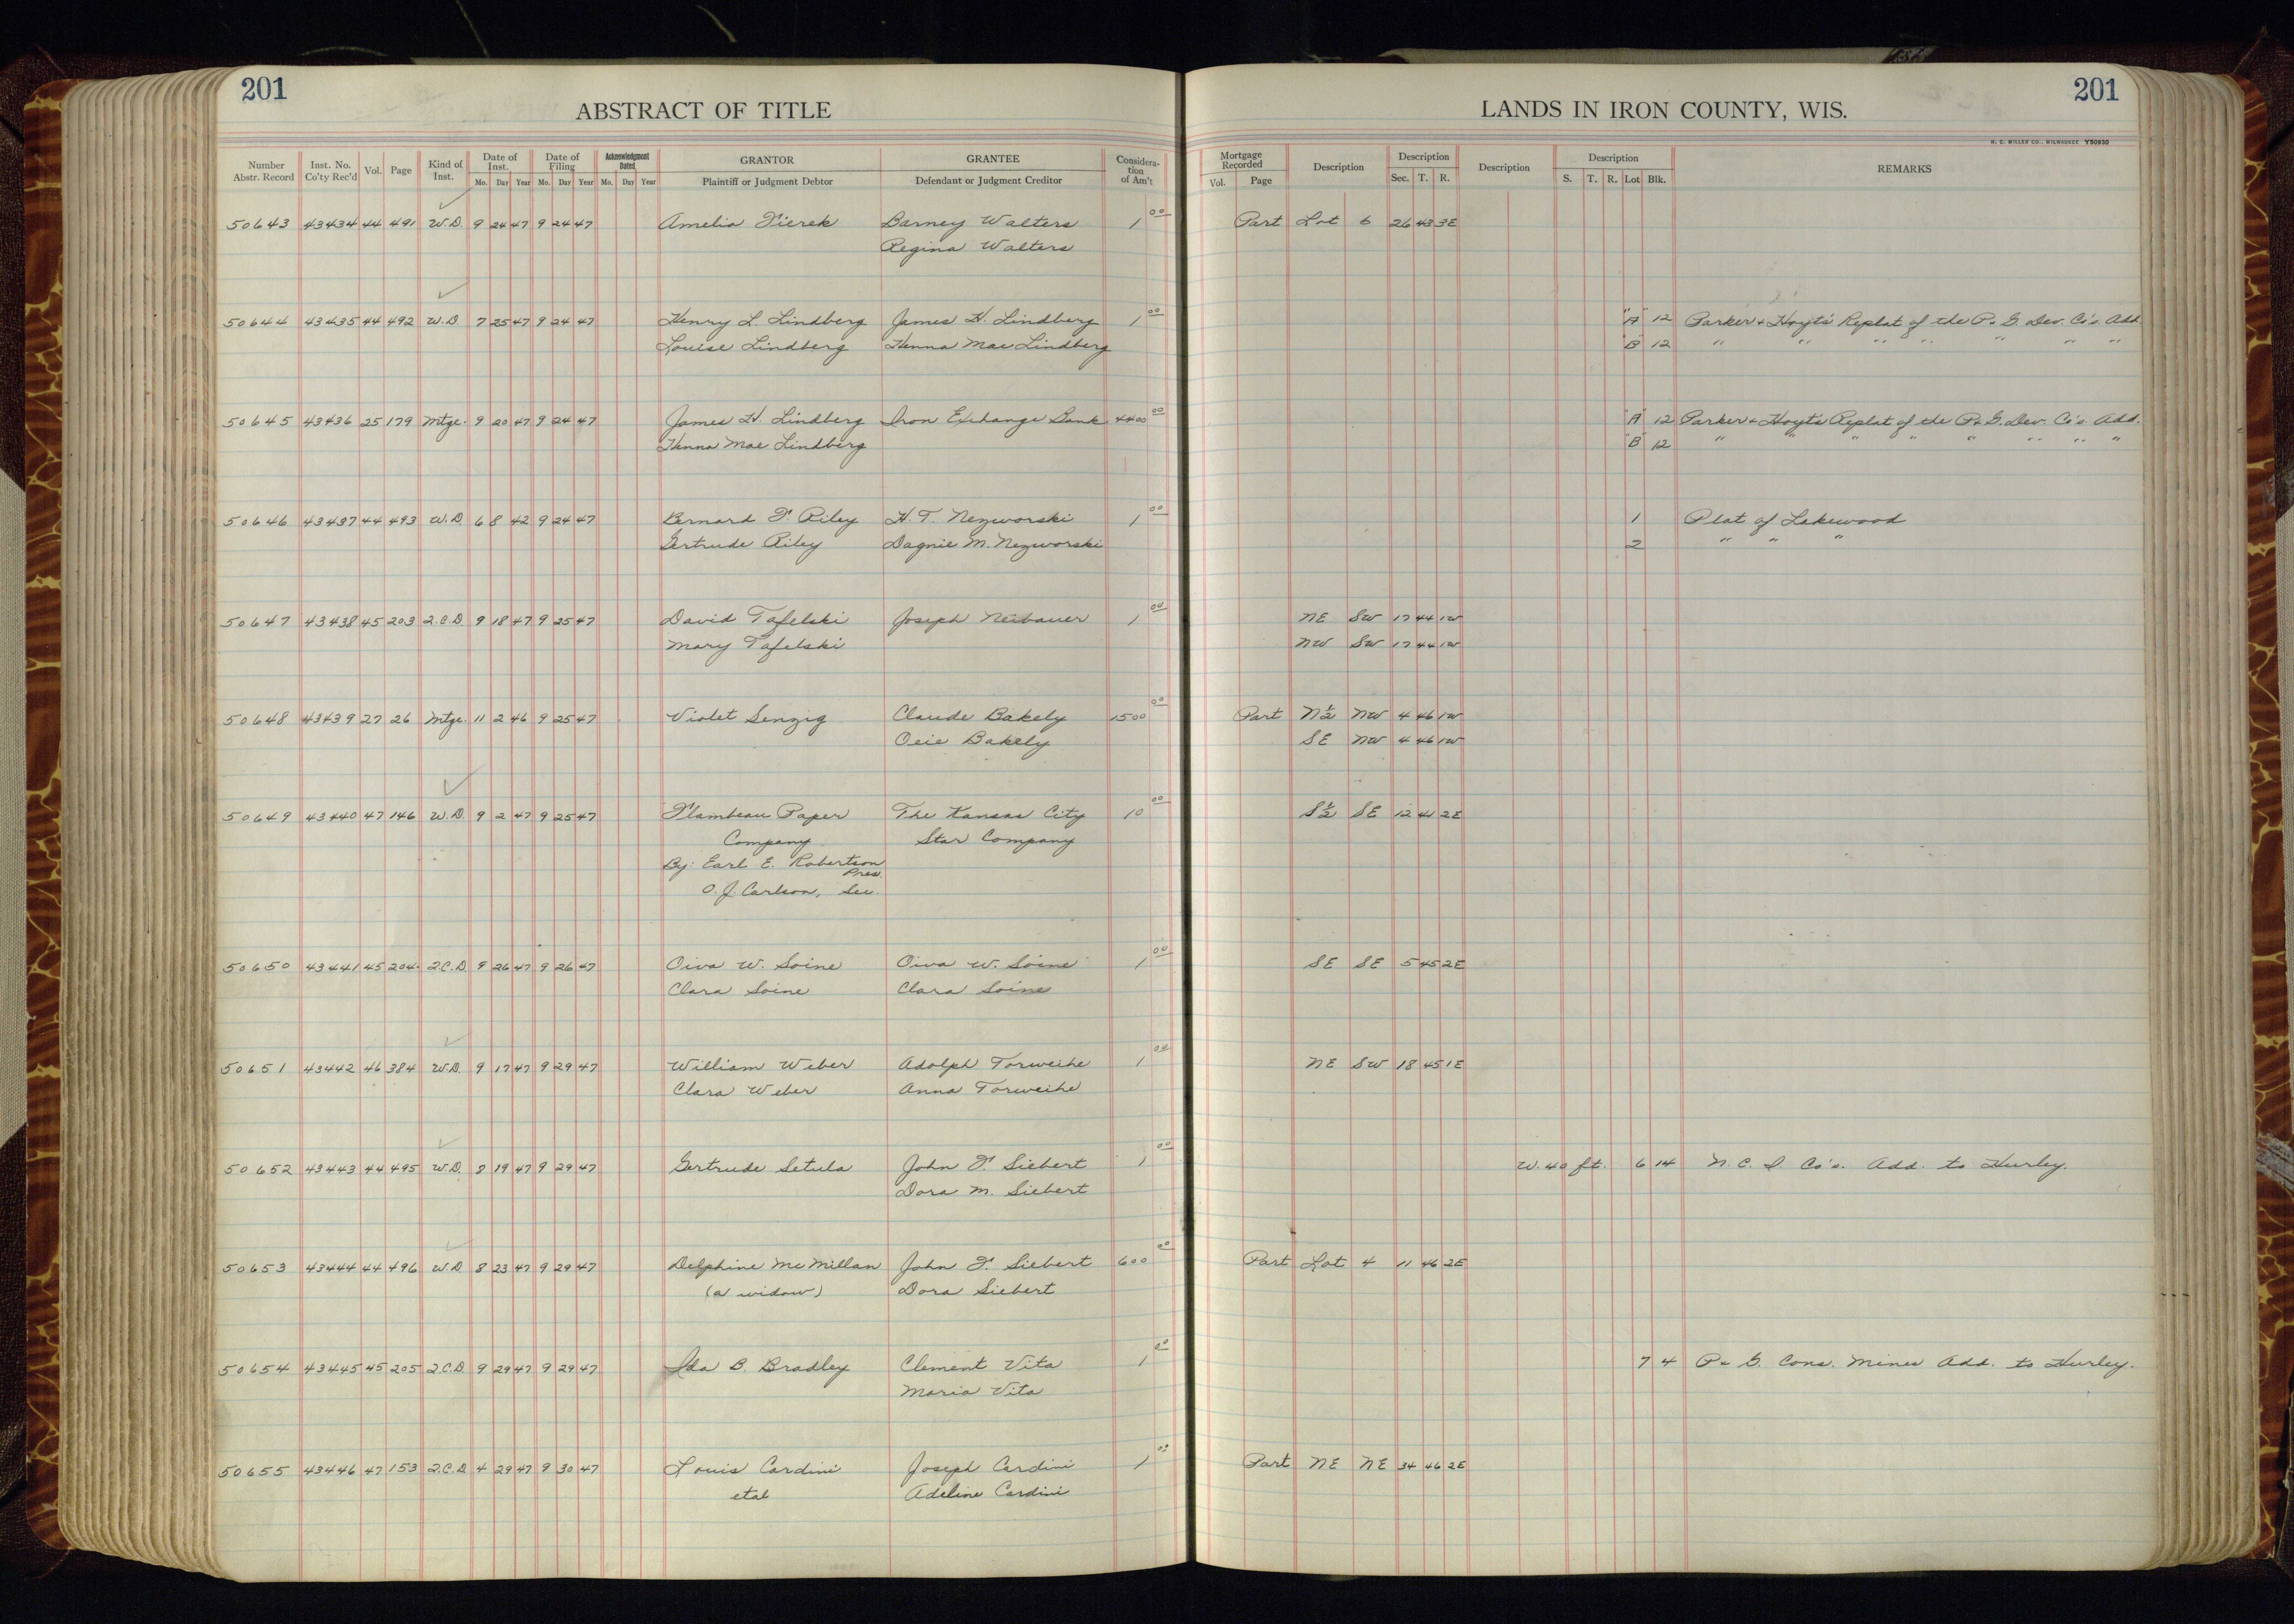 201
ABSTRACT OF TITLE
LANDS IN IRON COUNTY, WIS.
201
H. C. MILLER CO., MILWAUKEE Y50930
Number Abstr. Record Inst. No. Co'ty Rec'd Vol. Page Kind of Inst. Date of Inst. Mo. Day Year Date of Filing Mo. Day Year Acknowledgment Dated Mo. Day Year GRANTOR Plaintiff or Judgment Debtor GRANTEE Defendant or Judgment Creditor Considera-tion of Am't Mortgage Recorded Vol. Page Description Description Sec. T. R. Description Description S. T. R. Lot Blk. REMARKS
50643 43434 44 491 W.D. 9 24 47 9 24 47 Amelia Fierek Barney Walters 1 00 Part Lot 6 26 43 3E
Regina Walters
50644 43435 44 492 W.D. 7 25 47 9 24 47 Henry L. Lindberg James H. Lindberg 1 00 "A" 12 Parker & Hoyt's Replat of the P. & G. Dev. Co's. Add.
Louise Lindberg Henna Mae Lindberg "B" 12 " " " " " " "
50645 43436 25 179 Mtge. 9 20 47 9 24 47 James H. Lindberg Iron Exchange Bank 4400 00 "A" 12 Parker & Hoyt's Replat of the P. & G. Dev. Co's. Add.
Henna Mae Lindberg "B" 12 " " " " " " " "
50646 43437 44 493 W.D. 6 8 42 9 24 47 Bernard F. Riley H. T. Nezworski 1 00 1 Plat of Lakewood
Gertrude Riley Dagnie M. Nezworski 2 " " "
50647 43438 45 203 Q.C.D. 9 18 47 9 25 47 David Tafelski Joseph Neubauer 1 00 NE SW 17 44 1W
Mary Tafelski NW SW 17 44 1W
50648 43439 27 26 Mtge. 11 2 46 9 25 47 Violet Senzig Claude Bakely 1500 00 Part N½ NW 4 46 1W
Bakely SE NW 4 46 1W
50649 43440 47 146 W.D. 9 2 47 9 25 47 Flambeau Paper The Kansas City 10 00 S½ SE 12 41 2E
Company Star Company
By: Earl E. Robertson
Pres.
O. J. Carlson, Sec.
50650 43441 45 204 Q.C.D. 9 26 47 9 26 47 Oiva W. Soine Oiva W. Soine 1 00 SE SE 5 45 2E
Clara Soine Clara Soine
50651 43442 46 384 W.D. 9 17 47 9 29 47 William Weber Adolph Torweihe 1 00 NE SW 18 45 1E
Clara Weber Anna Torweihe
50652 43443 44 495 W.D. 8 19 47 9 29 47 Gertrude Setula John F. Siebert 1 00 W. 40 ft. 6 14 N. C. I. Co's. Add. to Hurley.
Dora M. Siebert
50653 43444 44 496 W.D. 8 23 47 9 29 47 Delphine McMillan John F. Siebert 600 00 Part Lot 4 11 46 2E
(a widow) Dora Siebert
50654 43445 45 205 Q.C.D. 9 29 47 9 29 47 Ida B. Bradley Clement Vita 1 00 7 4 P. & G. Cons. Mines Add. to Hurley.
Maria Vita
50655 43446 47 153 Q.C.D. 4 29 47 9 30 47 Louis Cardini Joseph Cardini 1 00 Part NE NE 34 46 2E
etal Adeline Cardini